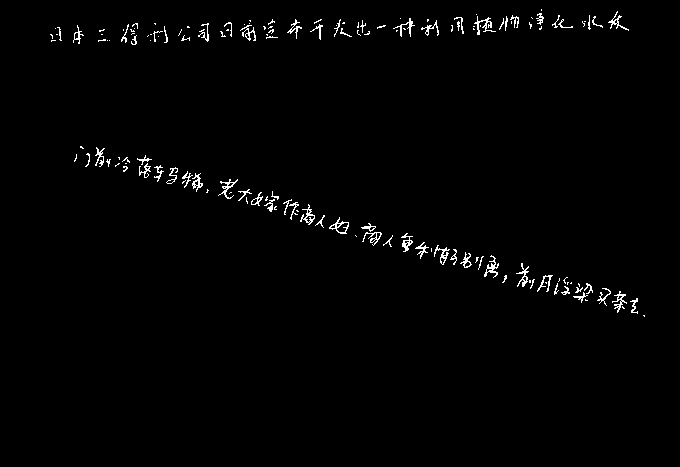 日本三得利公司日前宣布开发出一种利用植物净化水质
门前冷落车马稀，老大嫁作商人妇．商人重利轻别离，前月浮梁买茶去．